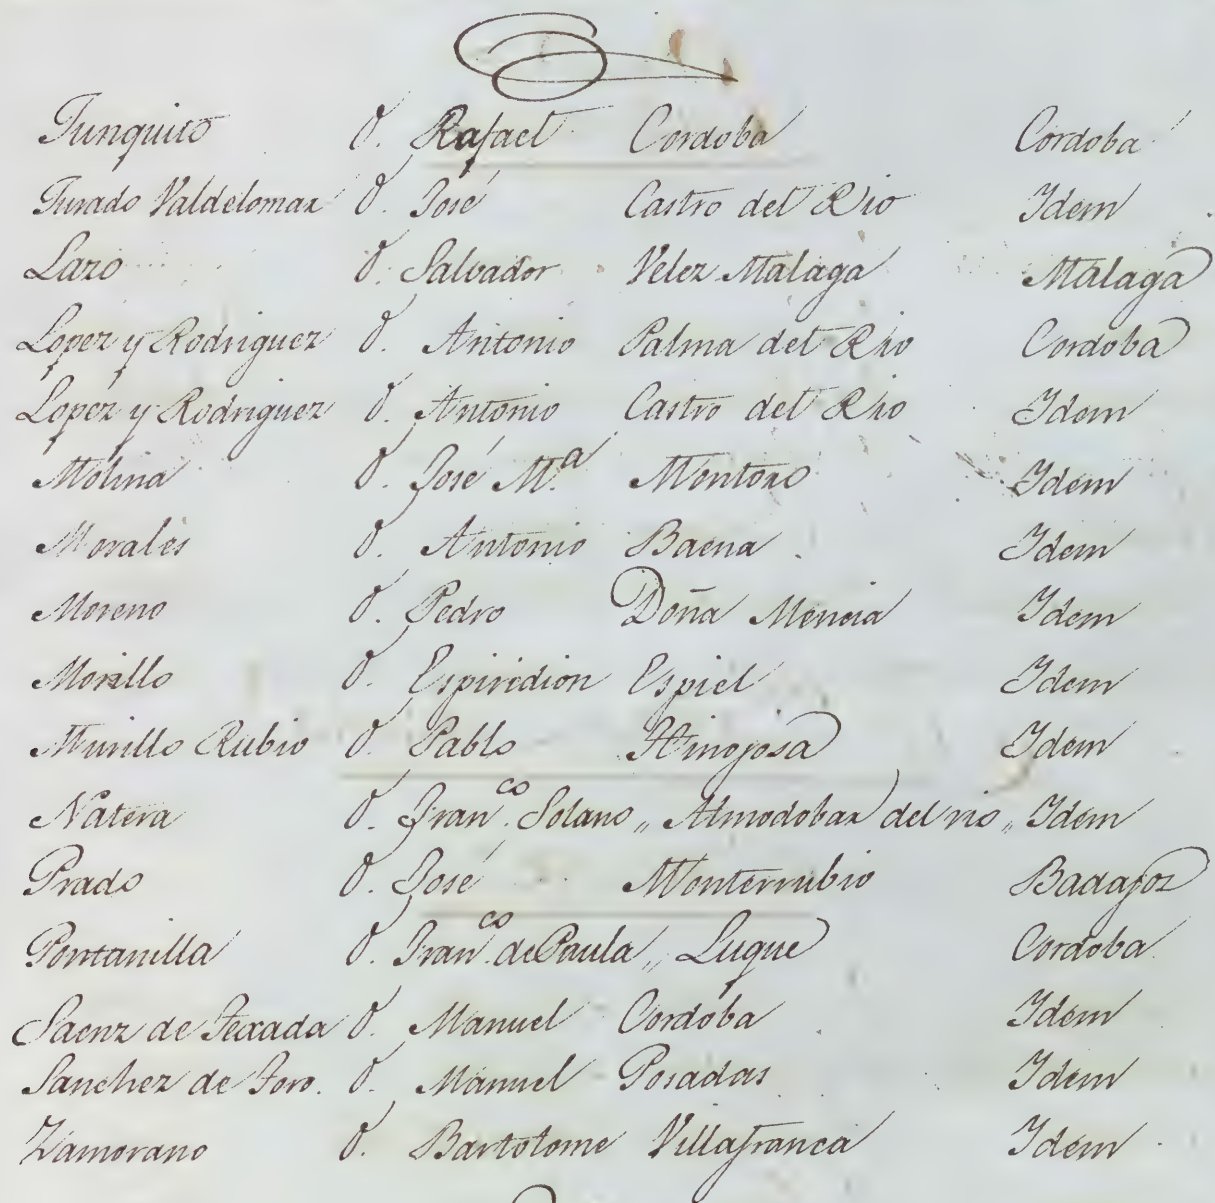 Junquito D. Rafael Cordoba Cordoba
Jurado Valdelomar D. José Castro del Rio Idem
Lazo D. Salvador Velez Malaga Malaga
Lopez y Rodriguez D. Antonio Palma del Rio Cordoba
Lopez y Rodriguez D. Antonio Castro del Rio Idem
Molina D. José M.ª Montoro Idem
Morales D. Antonio Baena Idem
Moreno D. Pedro Doña Mencia Idem
Morillo D. Espiridion Espiel Idem
Murillo Rubio D. Pablo Hinojosa Idem
Natera D. Fran.co Solano „ Almodobar del rio „ Idem
Prado D. José Monterrubio Badajoz
Pontanilla D. Fran.co de Paula „ Luque Cordoba
Saenz de Texada D. Manuel Cordoba Idem
Sanchez de Toro. D. Manuel Posadas Idem
Zamorano D. Bartolome Villafranca Idem